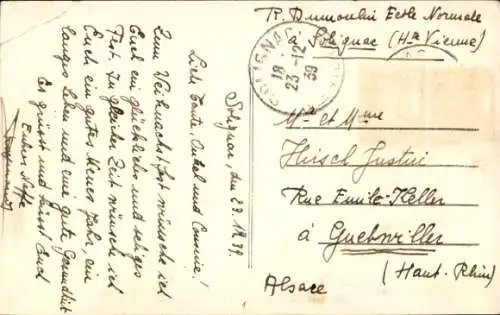 R. Dumoulin Ecole Normale
à Solignac (Hte Vienne)
SOLIGNAC
18
23 -12
39
Mlle et Mme
Hirsch Justin
Rue Emile-Keller
à Guebwiller
(Haut-Rhin)
Alsace
Solignac, den 23.12.39.
Lieb Tante, Onkel und Connie!
Zum Weihnachtsfest wünsche ich
Euch ein glückliches und seliges
Fest. In gleicher Zeit wünsch ich
Euch ein gutes Neues Jahr ein
langes Leben und eine gute Gesundheit
Es grüsst und küsst Euch
Euher Neffe